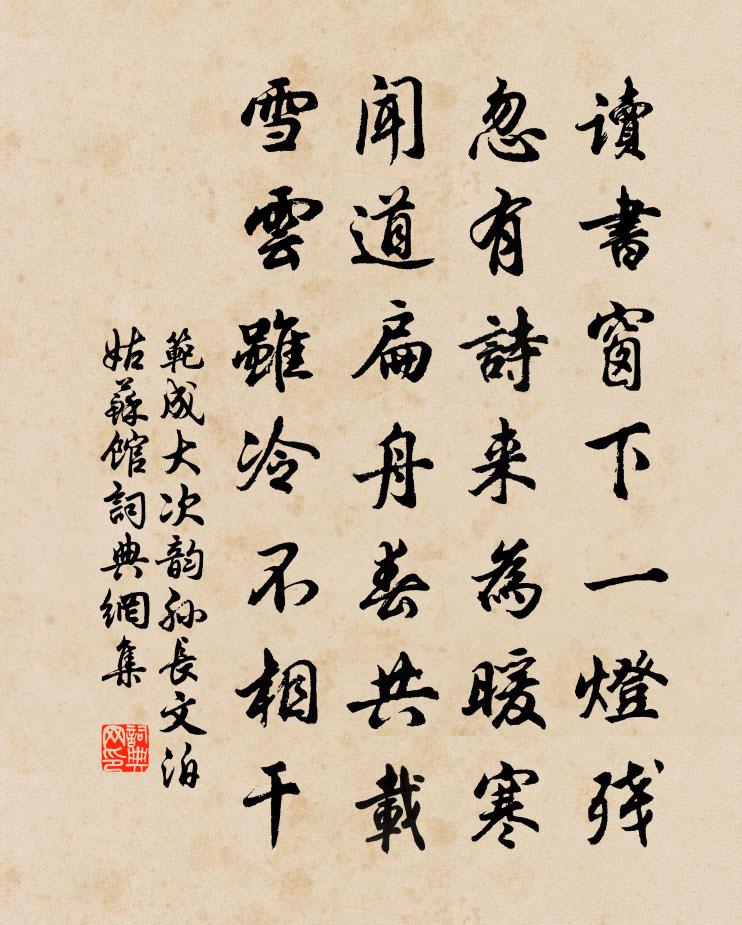 讀書窗下一燈残
忽有詩来為暖寒
聞道扁舟春共載
雪雲雖冷不相干
範成大次韵孙長文泊
姑蘇館詞典網集
詞典网印